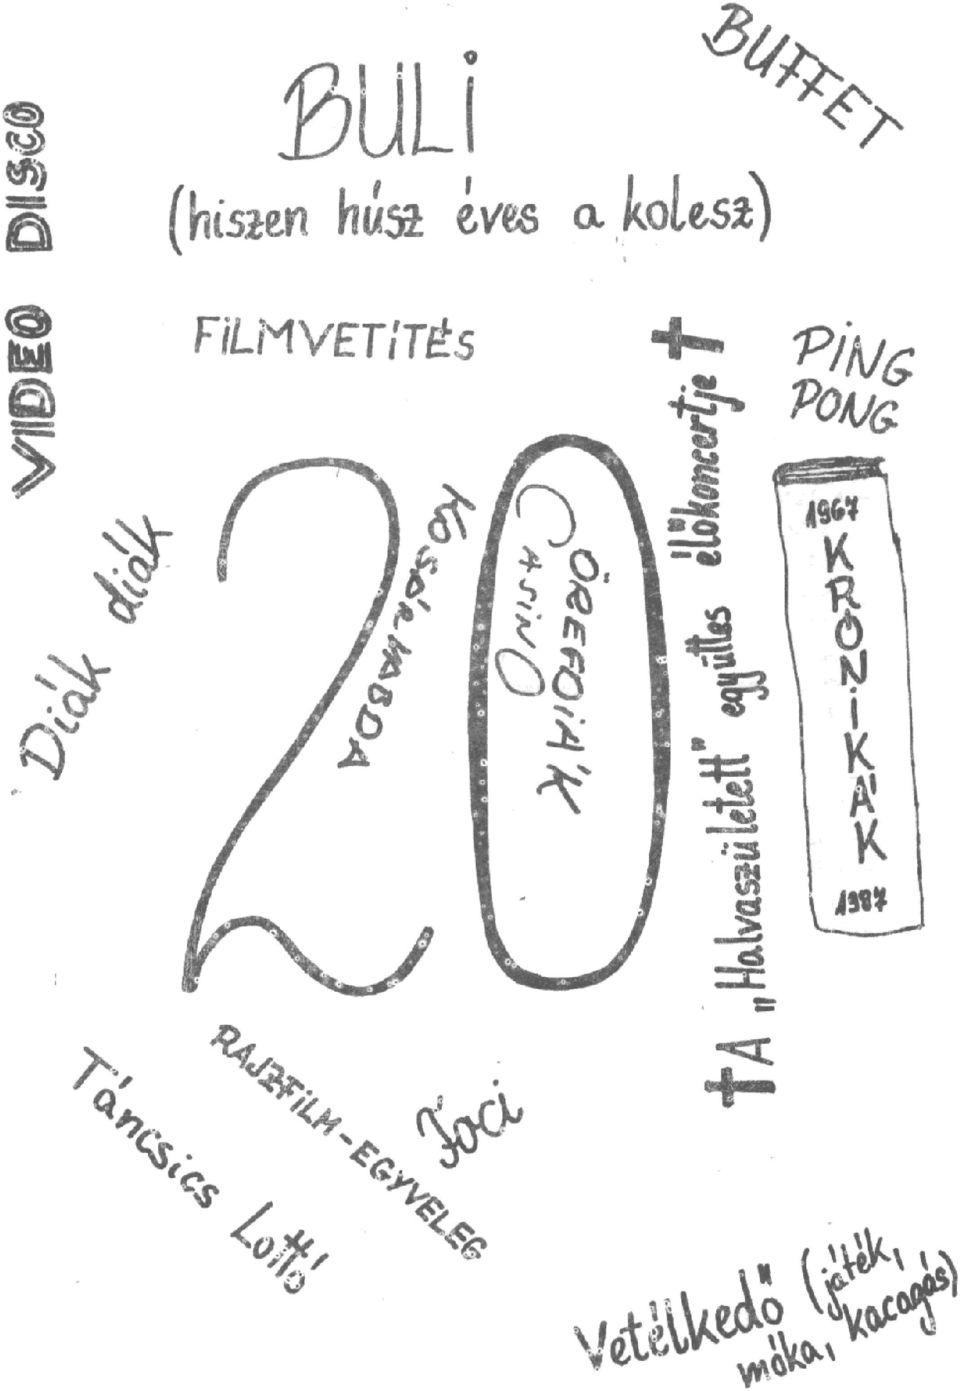 BUFFET
BULI
(hiszen húsz éves a kolesz)
VIDEO DISCO
FILMVETÍTÉS
PING
PONG
Diák diák
20
KOSÁRLABDA
CASINO
ÖREGDIÁK
† A „Halvaszületett" együttes élőkoncertje †
1967
KRÓNIKÁK
1987
Táncsics Lottó
RAJZFILM-EGYVELEG
Foci
Vetélkedő (játék,
móka, kacagás)